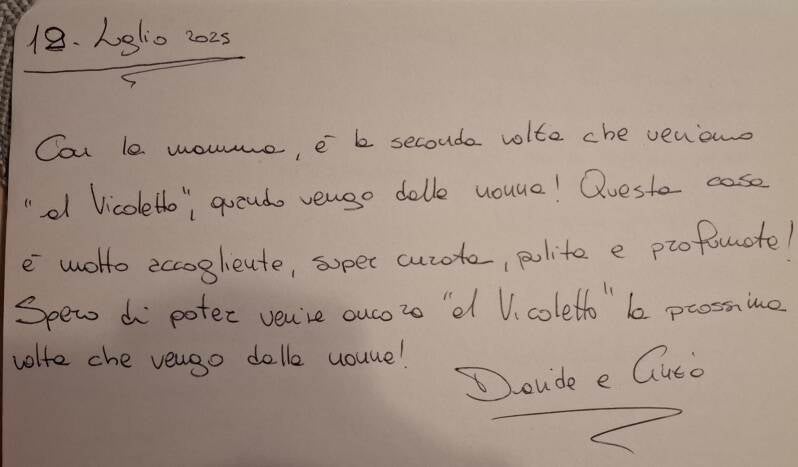 12. Luglio 2025
Con la mamma, è la seconda volta che veniamo
"al Vicoletto", quando vengo dalla nonna! Questa casa
è molto accogliente, super curata, pulita e profumata!
Spero di poter venire ancora "al Vicoletto" la prossima
volta che vengo dalla nonna!
Davide e